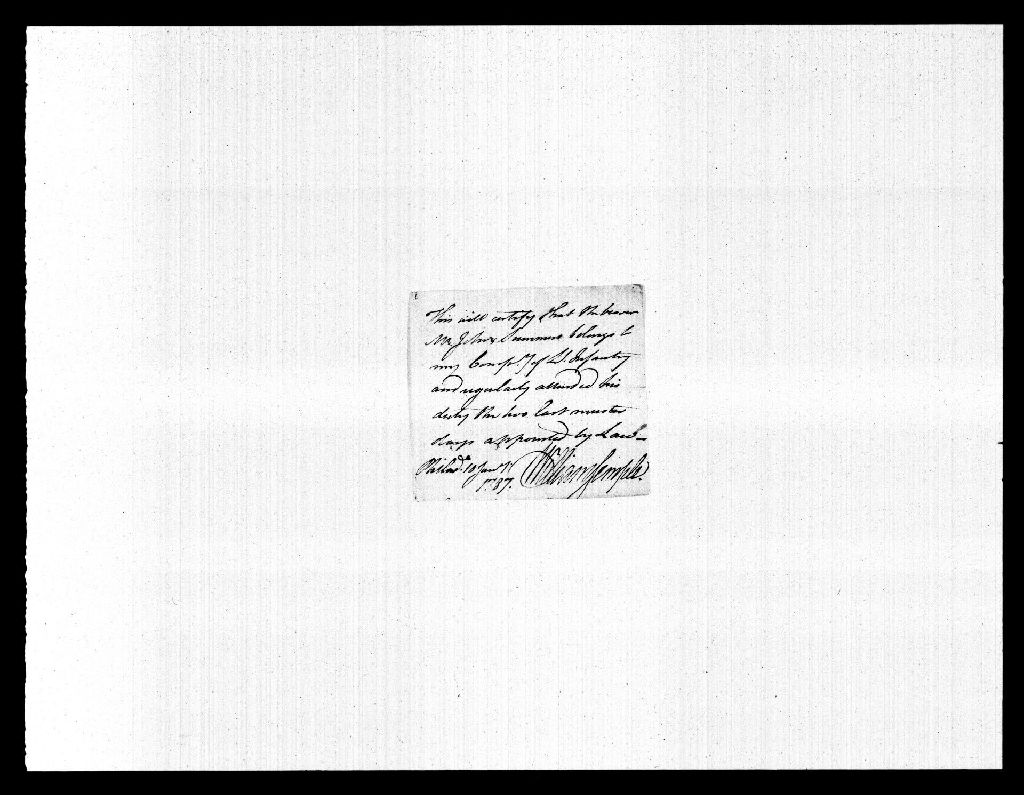 This will certify that the bearer
Mr John Summers belongs to
my Comp.y of Lt. Infantry
and regularly attended his
duty the two last muster
days appointed by Law—
Philad.a 10 Jan.y
1787. William Semple.